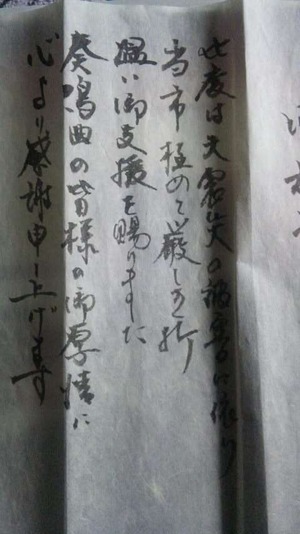 此度は大震災の被害に依り
当市極めて厳しき折
温い御支援を賜りました
奏鳴曲の皆様の御厚情に
心より感謝申し上げます